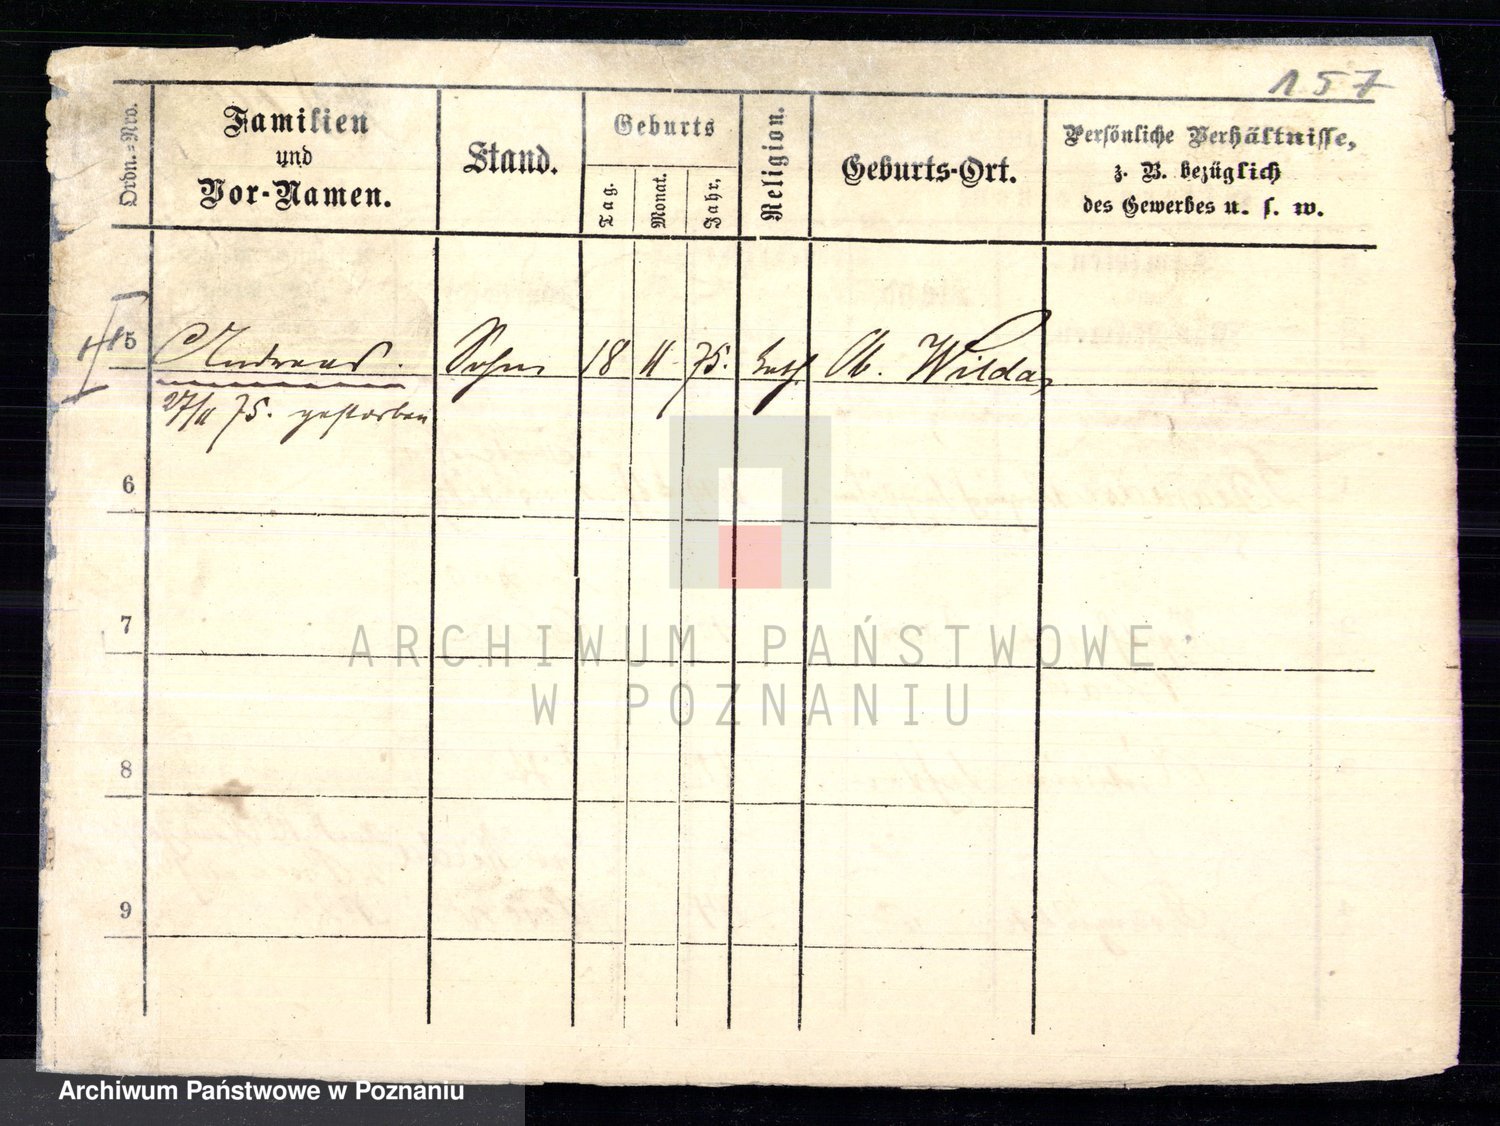 157
Ordn.=Nro.
Familien
und
Vor-Namen.
Stand.
Geburts
Tag.
Monat.
Jahr,
Religion.
Geburts-Ort.
Persönliche Verhältnisse,
z. B. bezüglich
des Gewerbes u. s. w.
5 Andreas. Sohn 18 11 75. kath Ob. Wilda
27/11 75. gestorben
6
7
8
9
ARCHIWUM PAŃSTWOWE
W POZNANIU
Archiwum Państwowe w Poznaniu